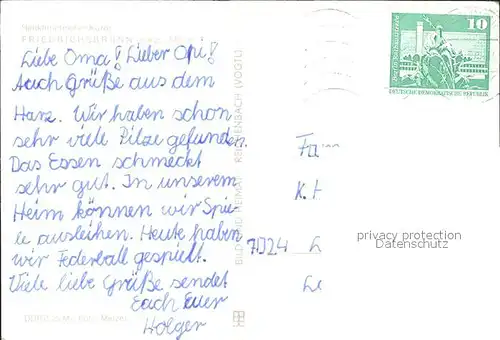 FRIEDRICHSBRUNN
Liebe Oma! Lieber Opi!
Auch Grüße aus dem
Harz. Wir haben schon
sehr viele Pilze gefunden.
Das Essen schmeckt
sehr gut. In unserem
Heim können wir Spie-
le ausleihen. Heute haben
wir Federball gespielt.
Viele liebe Grüße sendet
Euch Euer
Holger
BILD UND HEIMAT REICHENBACH (VOGTL)
10
DEUTSCHE DEMOKRATISCHE REPUBLIK
Fa
K. H
7024 L
privacy protection
Datenschutz